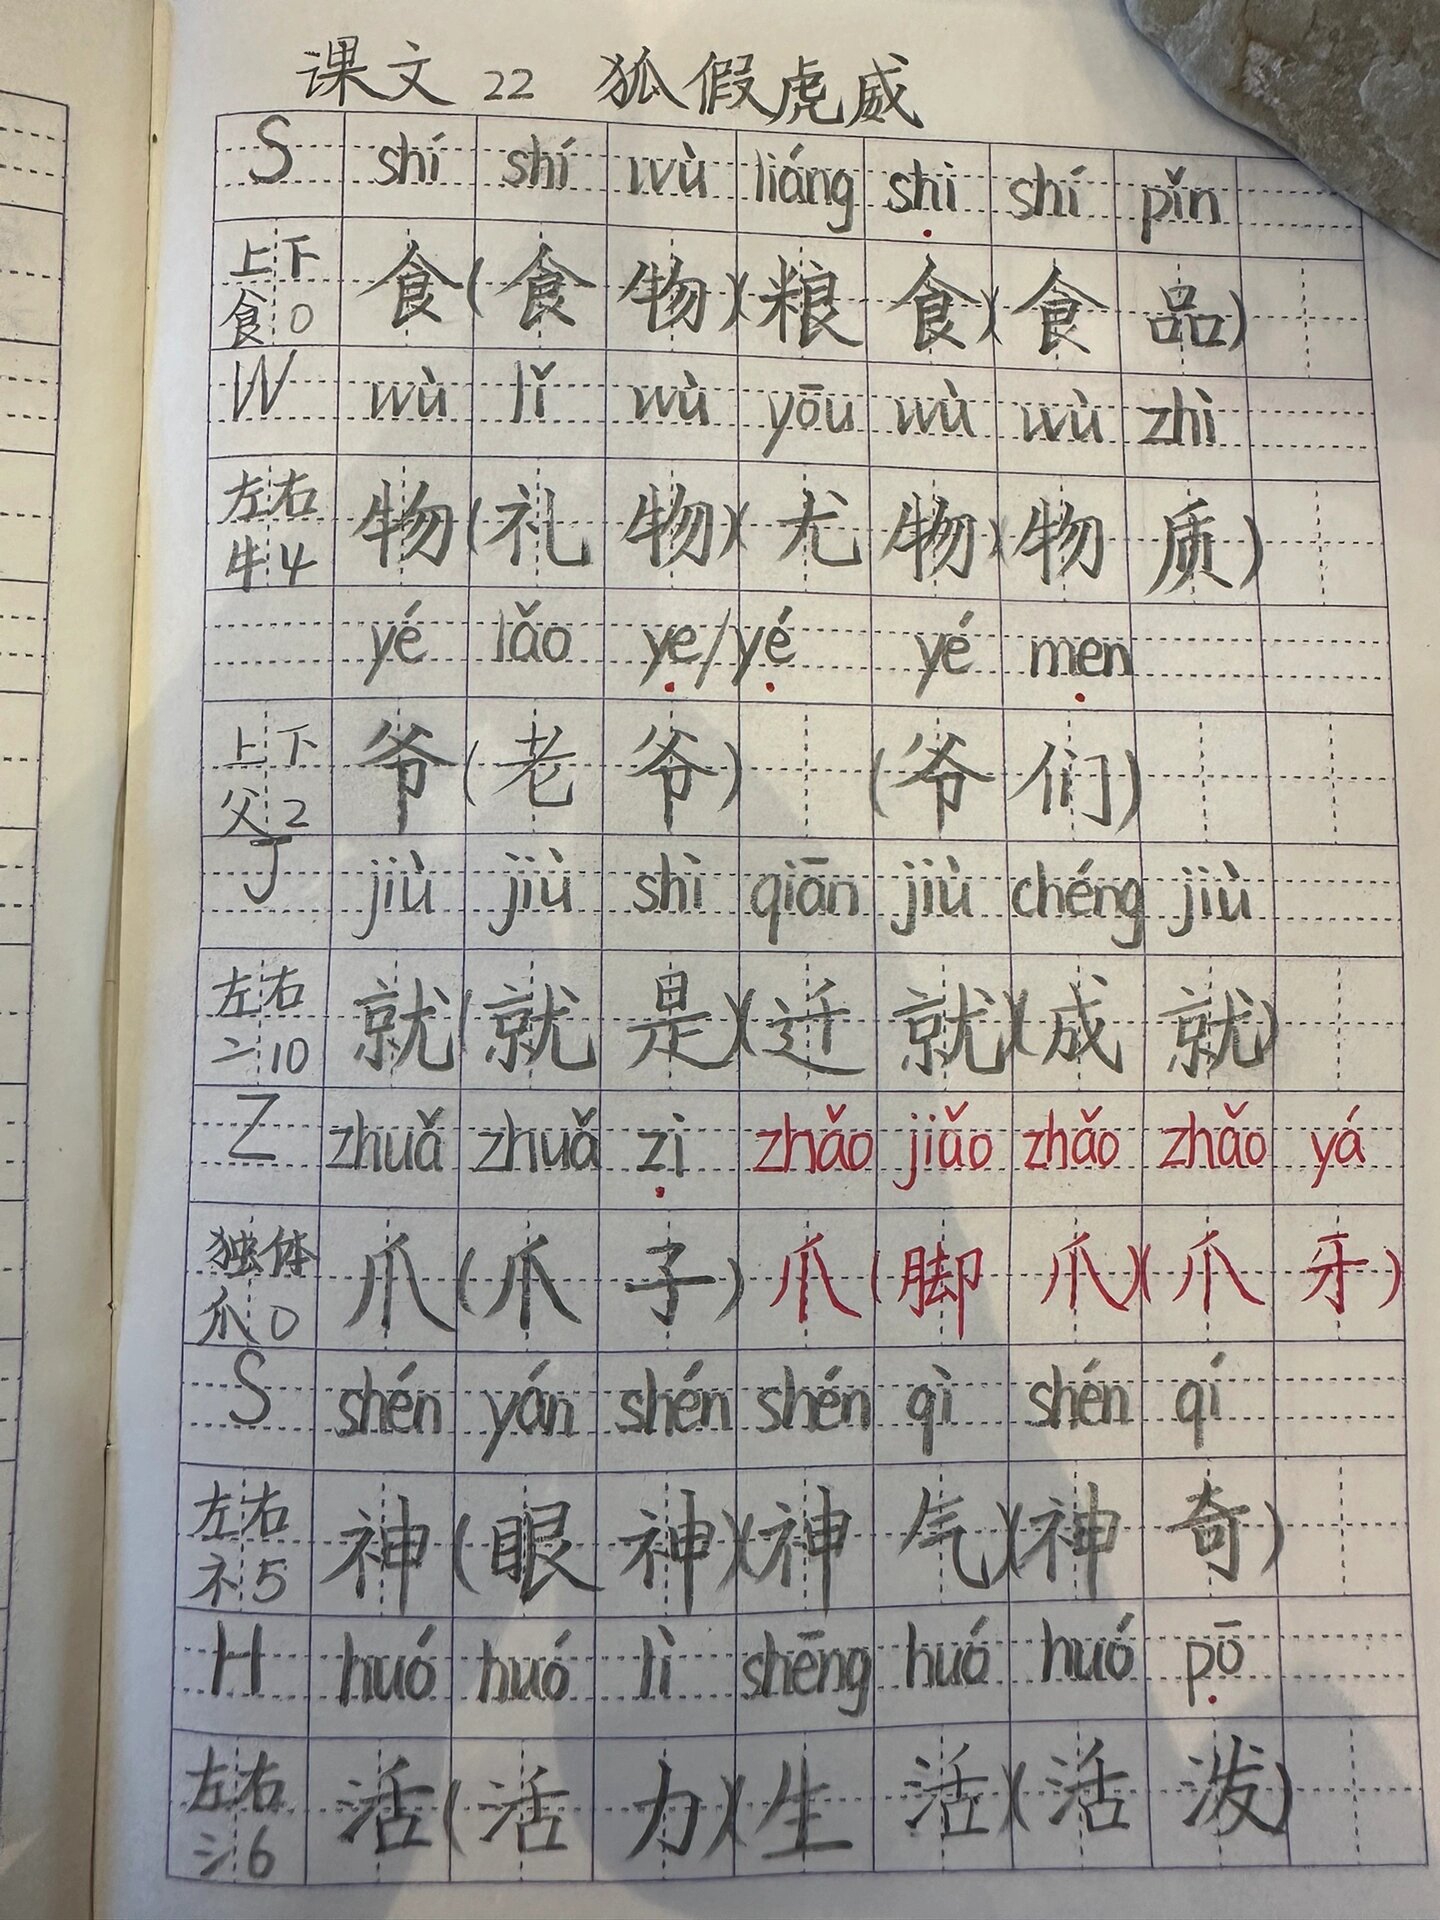 课文 22 狐假虎威
S shí shí wù liáng shi shí pǐn
上下 食0 食(食物)(粮食)(食品)
W wù lǐ wù yōu wù wù zhì
左右 牜4 物(礼物)(尤物)(物质)
yé lǎo ye/yé yé men
上下 父2 爷(老爷) (爷们)
J jiù jiù shì qiān jiù chéng jiù
左右 亠10 就(就是)(迁就)(成就)
Z zhuǎ zhuǎ zi zhǎo jiǎo zhǎo zhǎo yá
独体 爪0 爪(爪子)爪(脚爪)(爪牙)
S shén yán shén shén qì shén qí
左右 礻5 神(眼神)(神气)(神奇)
H huó huó lì shēng huó huó pō
左右 氵6 活(活力)(生活)(活泼)